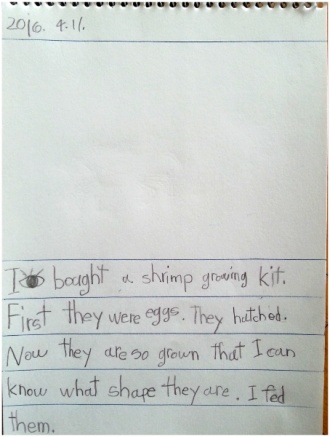 2016. 4.11.
I bought a shrimp growing kit.
First they were eggs. They hatched.
Now they are so grown that I can
know what shape they are. I fed
them.